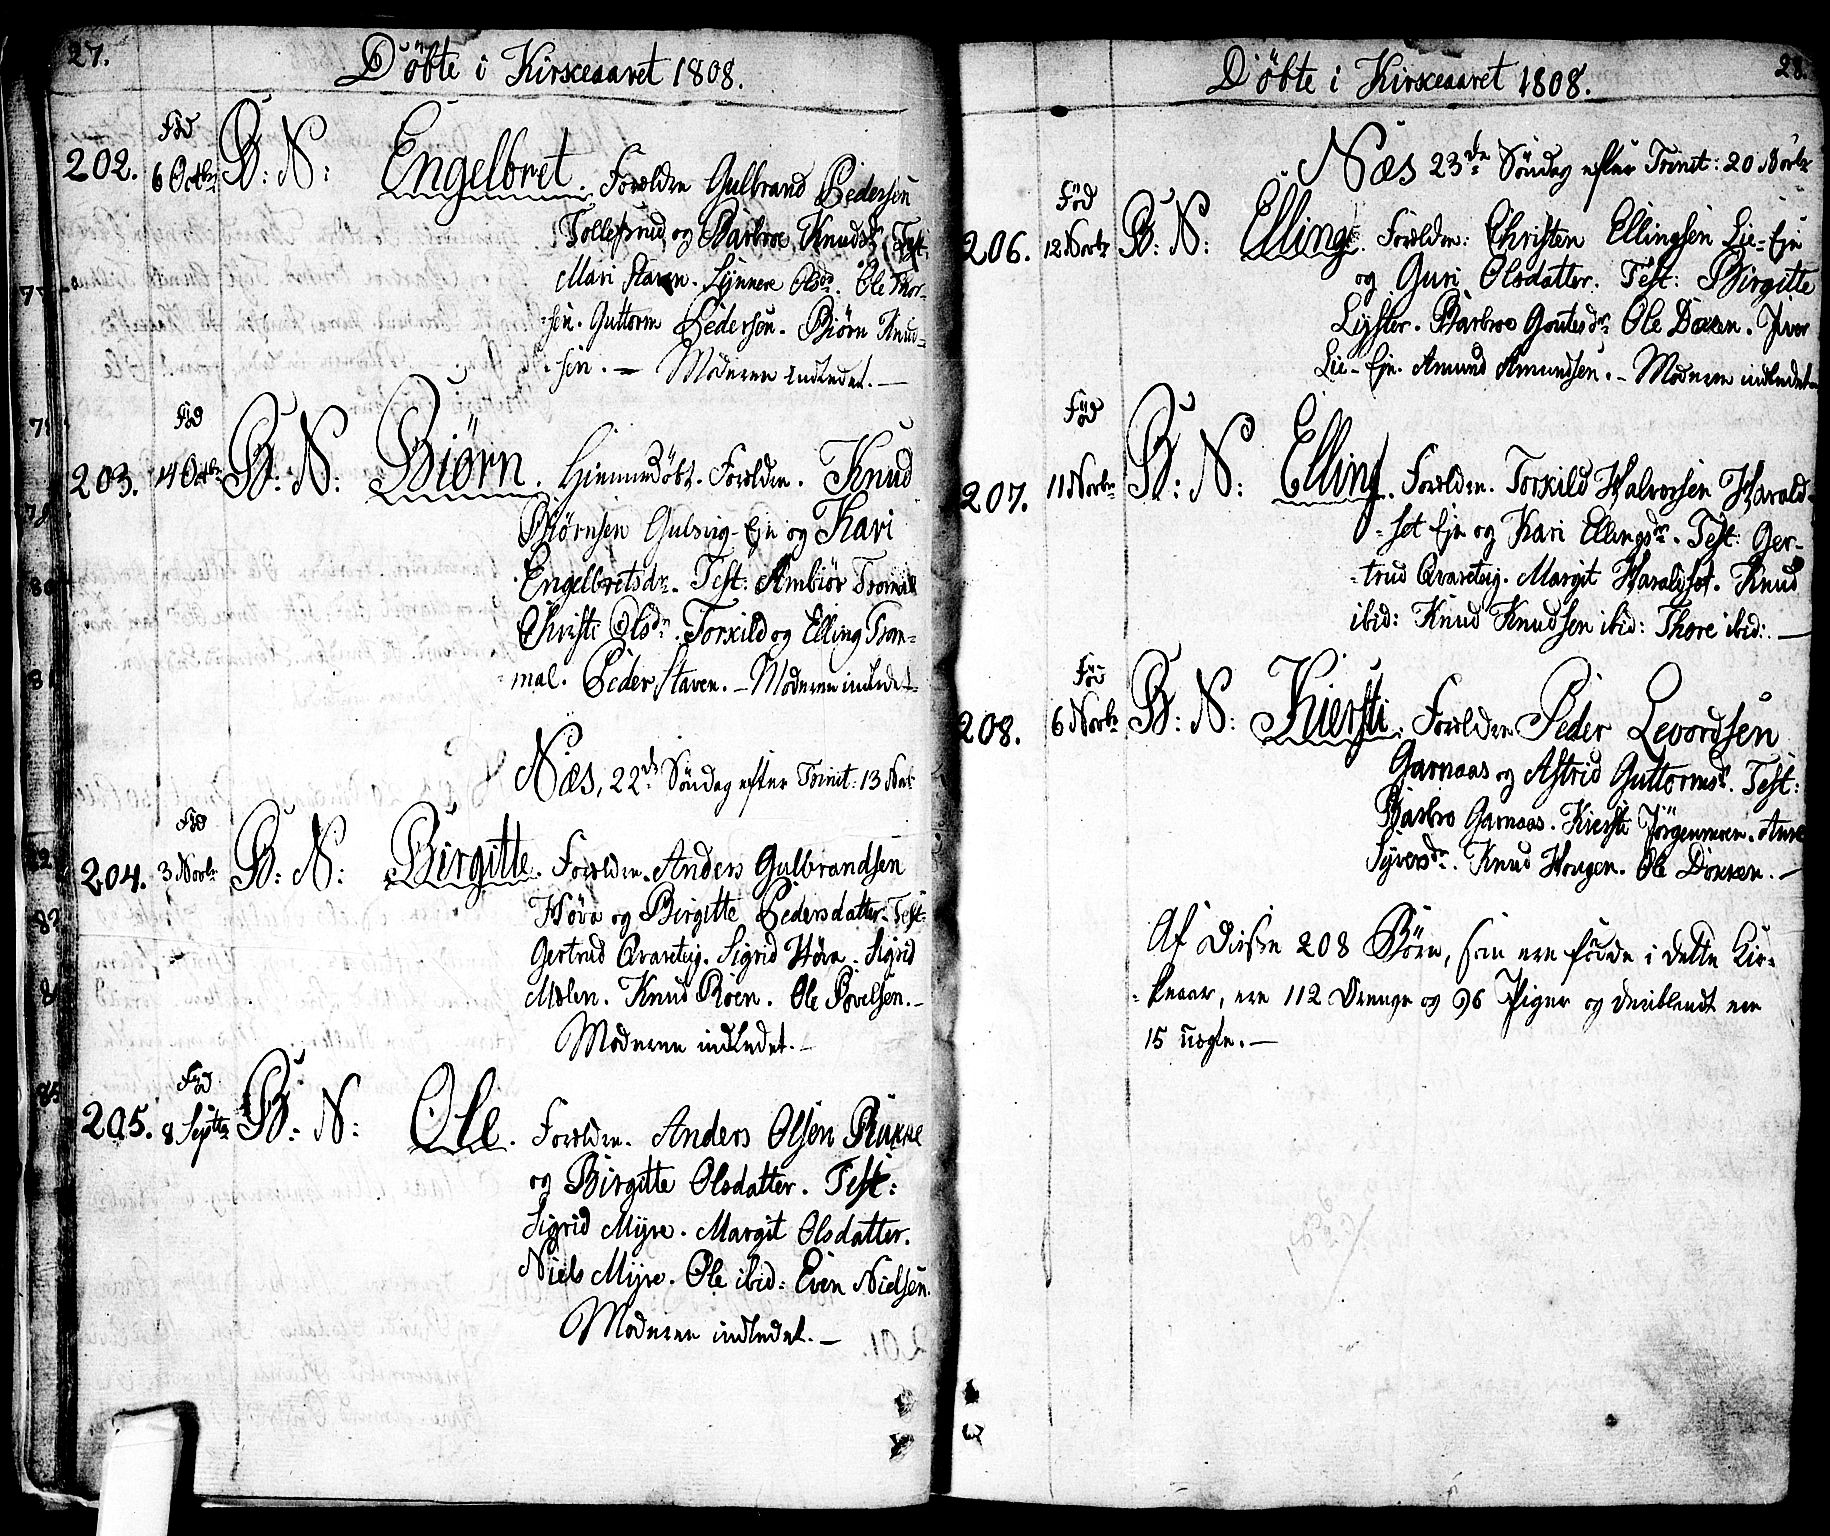 27.
Döbte i Kirkeaaret 1808.
202.
Föd
6 Octbr
B: N: Engelbret. Forældre Gulbrand Pedersen
Tollefsrud og Barbroe Knudsdr. Test:
Mari Staven. Synnere Olsdr. Ole Thor-
-sen. Guttorm Pedersen. Biörn Knud-
-sen. — Moderen indledet. —
203.
Föd
14 Octbr
B: N: Biörn. Hiemmedöbt. Forældre. Knud
Biörnsen Gulsvig-Eje og Kari
Engelbretsdr. Test: Ambiör Trommal
Christi Olsdr. Torkild og Elling Trom-
-mal. Peder Staven. — Moderen indledet.
Næs, 22de Söndag efter Trinit: 13 Novbr
204.
Föd
3 Novbr
B: N: Birgitte. Forældre. Anders Gulbrandsen
Höva og Birgitte Pedersdatter. Test:
Gertrud Qvareteig. Sigrid Höva. Sigrid
Molen. Knud Roen. Ole Povelsen. —
Moderen indledet. —
205.
Föd
8 Septbr
B: N: Ole. Forældre. Anders Olsen Rukke
og Birgitte Olsdatter. Test:
Sigrid Myre. Margit Olsdatter.
Niels Myre. Ole ibid: Even Nielsen.
Moderen indledet. —
28.
Döbte i Kirkeaaret 1808.
Næs 23de Söndag efter Trinit: 20 Novbr
206.
Föd
12 Novbr
B: N: Elling. Forældre: Christen Ellingsen Lie-Eje
og Guri Olsdatter. Test: Birgitte
Lyster. Barbroe Goutesdr. Ole Dokken. Iver
Lie-Eje. Amund Amundsen. — Moderen indledet
207.
Föd
11 Novbr
B: N: Elling. Forældre. Torkild Halvorsen Harald-
-set Eje og Kari Ellingsdr. Test: Ger-
-trud Qvareteig. Margit Haraldset. Knud
ibid: Knud Knudsen ibid: Thore ibid: —
208.
Föd
6 Novbr
B: N: Kiersti. Forældre Peder Levordsen
Garnaas og Astrid Guttormsdr. Test:
Barbro Garnaas. Kiersti Jörgenmoen. Anne
Syversdr. Knud Hougen. Ole Dokken. —
Af disse 208 Börn, som ere födde i dette Kir-
-keaar, ere 112 Drenge og 96 Piger og deriblandt ere
15 uægte. —